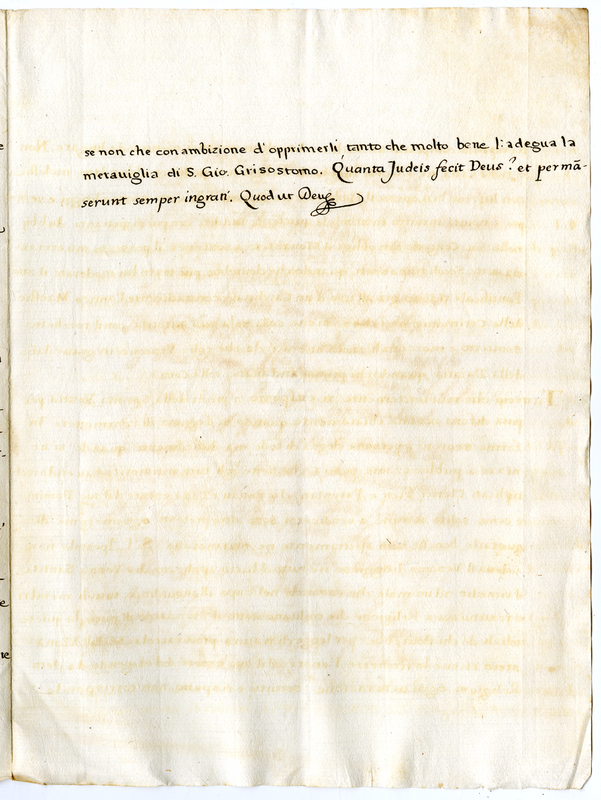 se non che con ambizione d'opprimerli tanto che molto bene l'adegua la
meraviglia di S. Gio. Grisostomo. Quanta Judeis fecit Deus? et permā-
serunt semper ingrati. Quod ut Deus